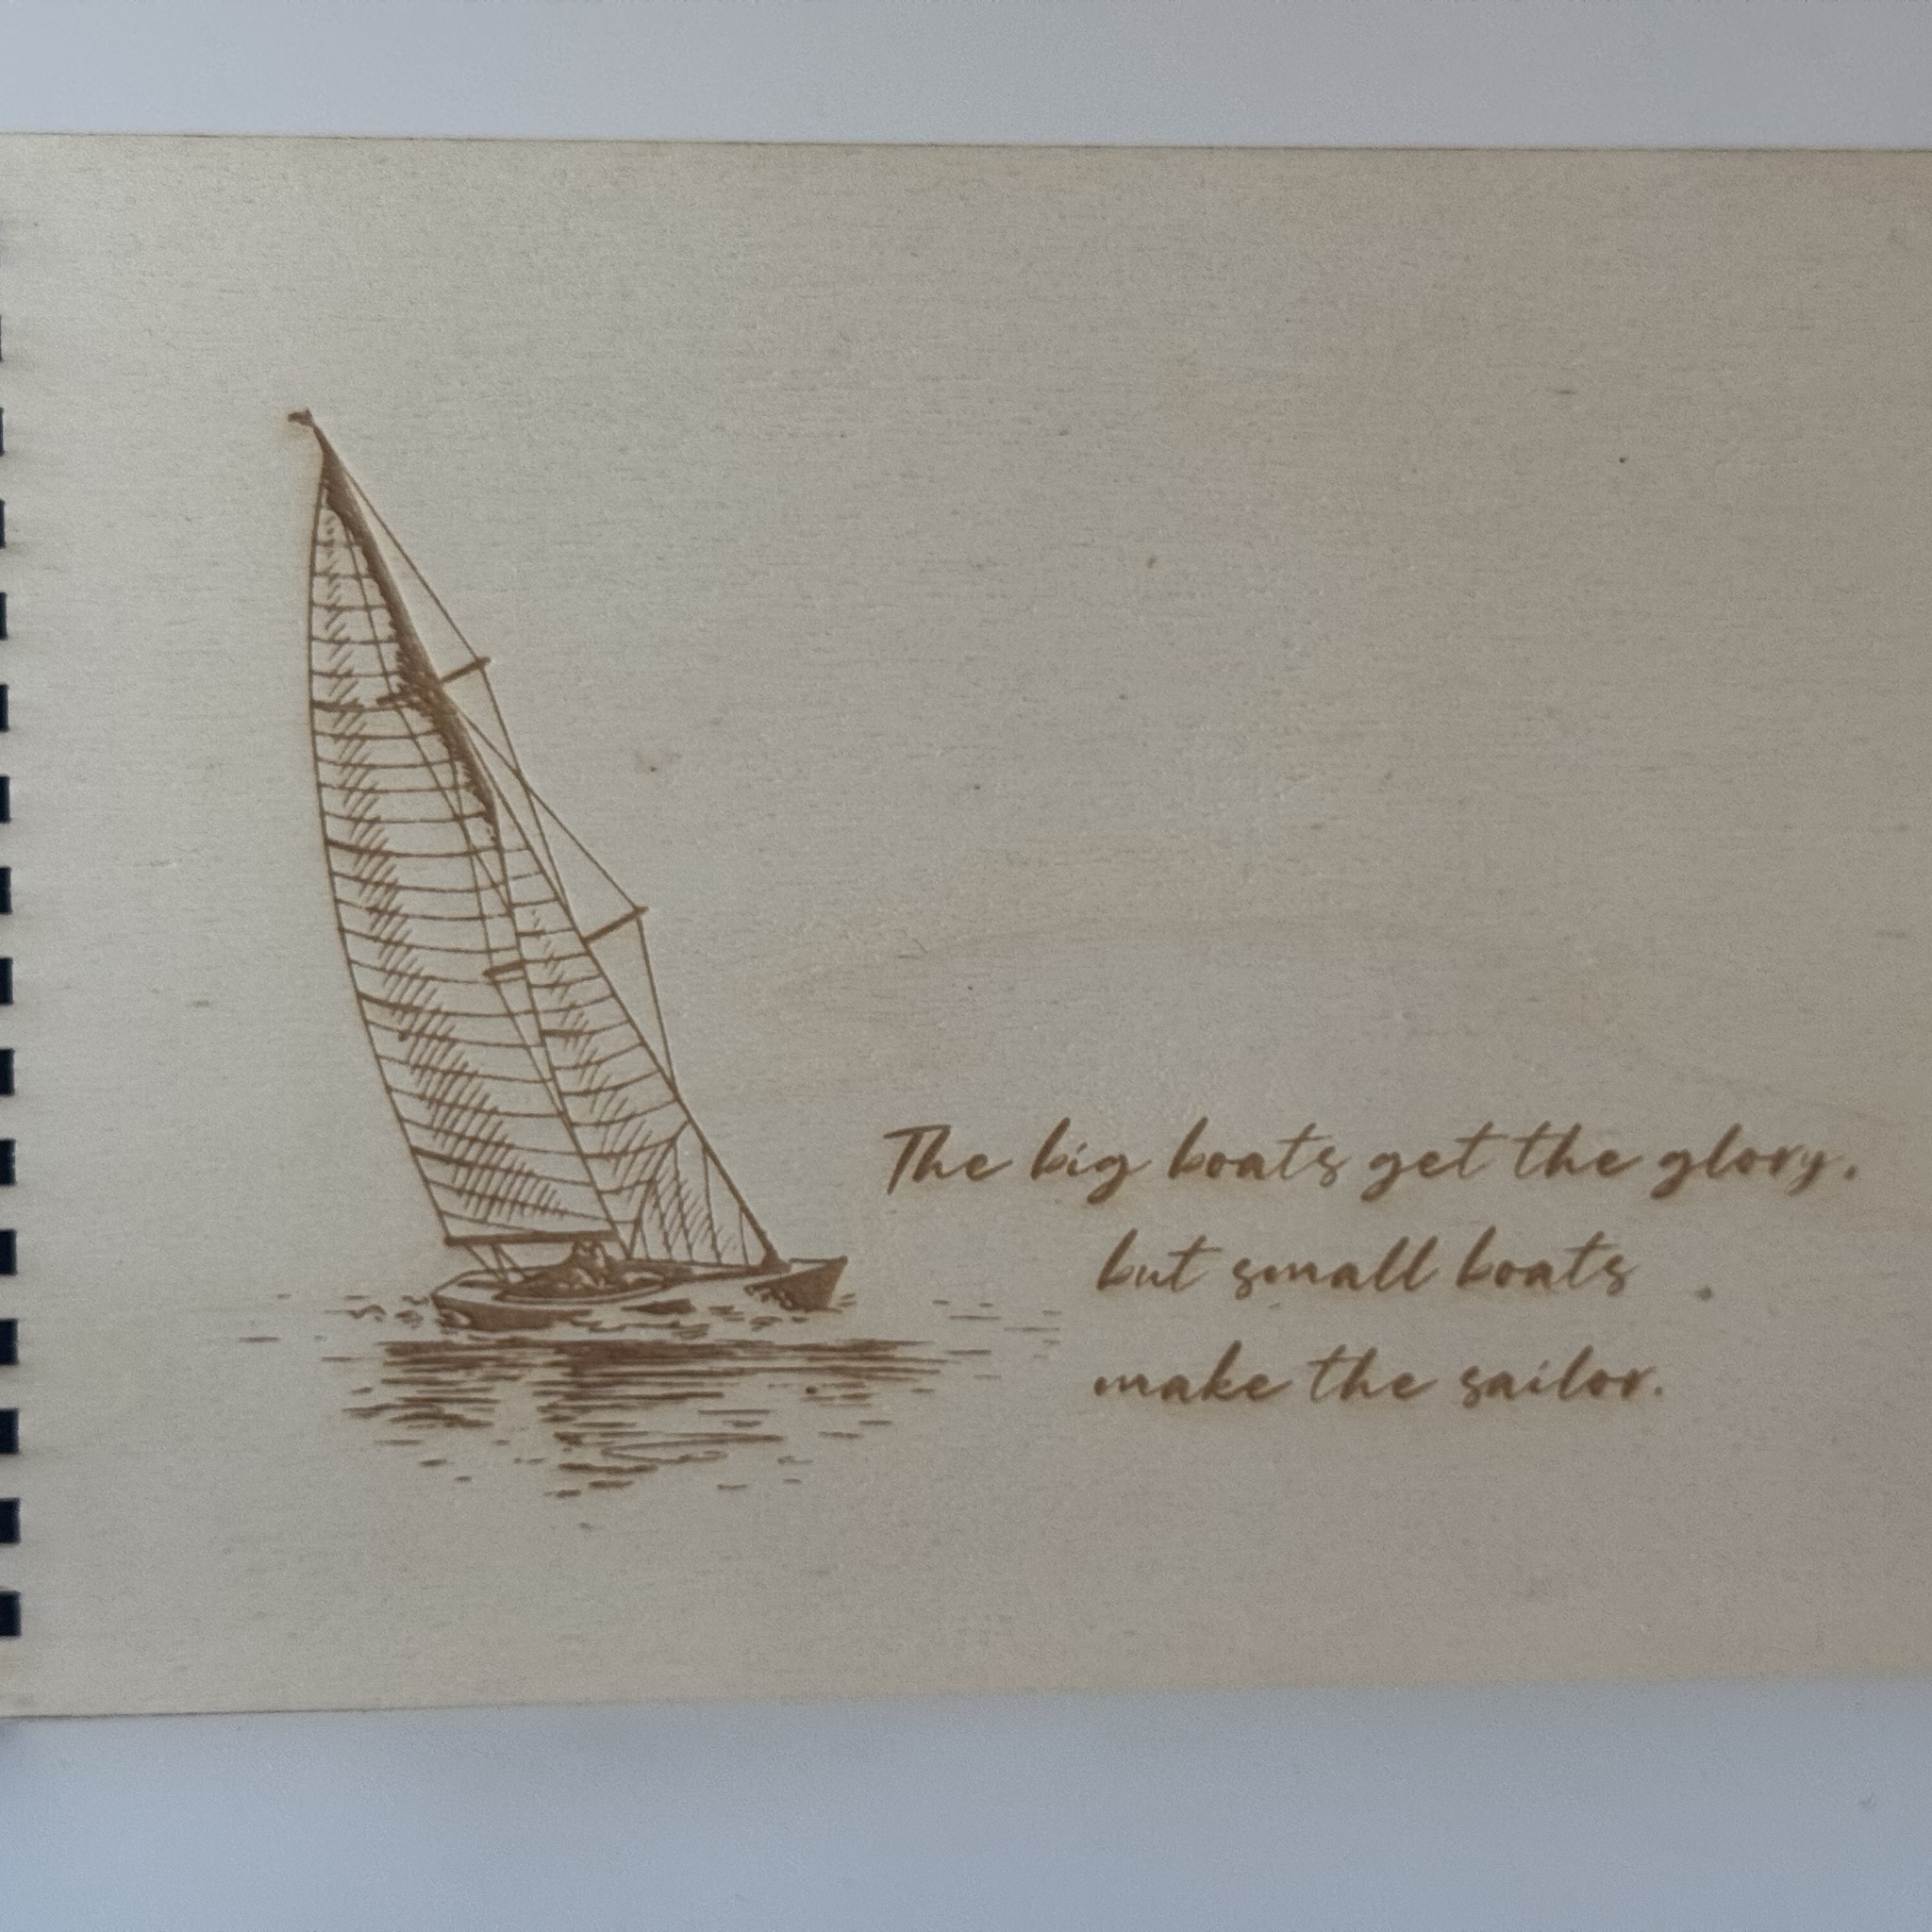 The big boats get the glory,
but small boats
make the sailor.